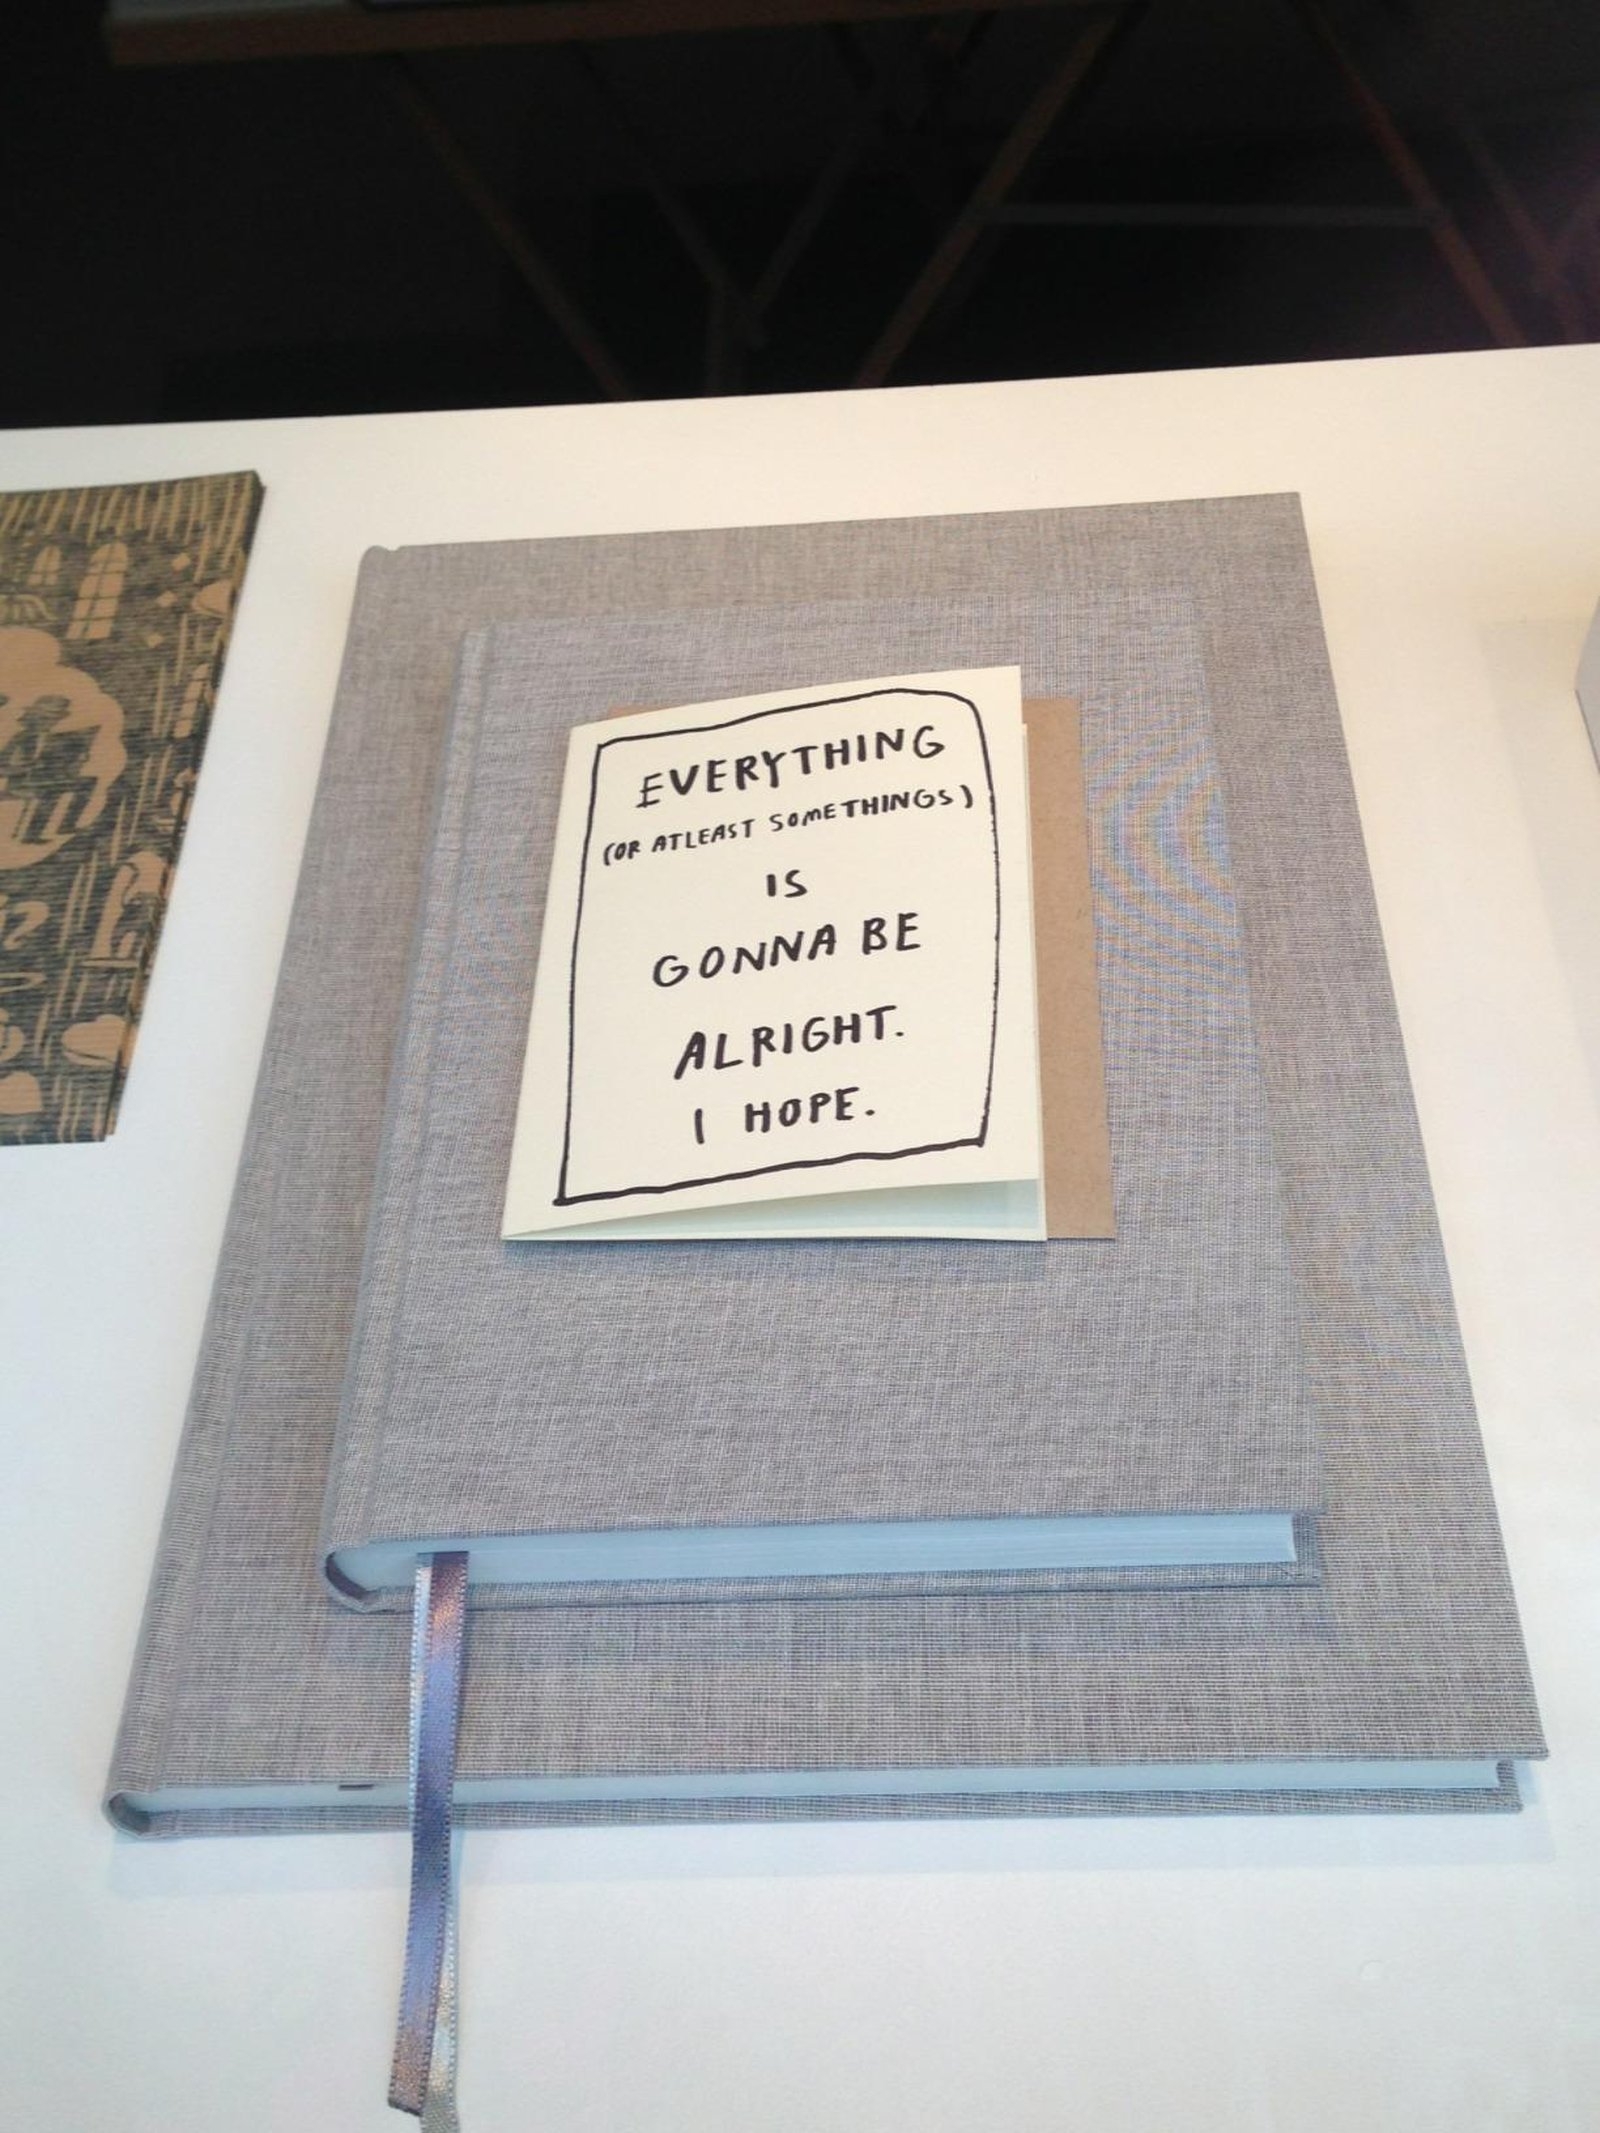 EVERYTHING
(OR ATLEAST SOMETHINGS)
IS
GONNA BE
ALRIGHT.
I HOPE.